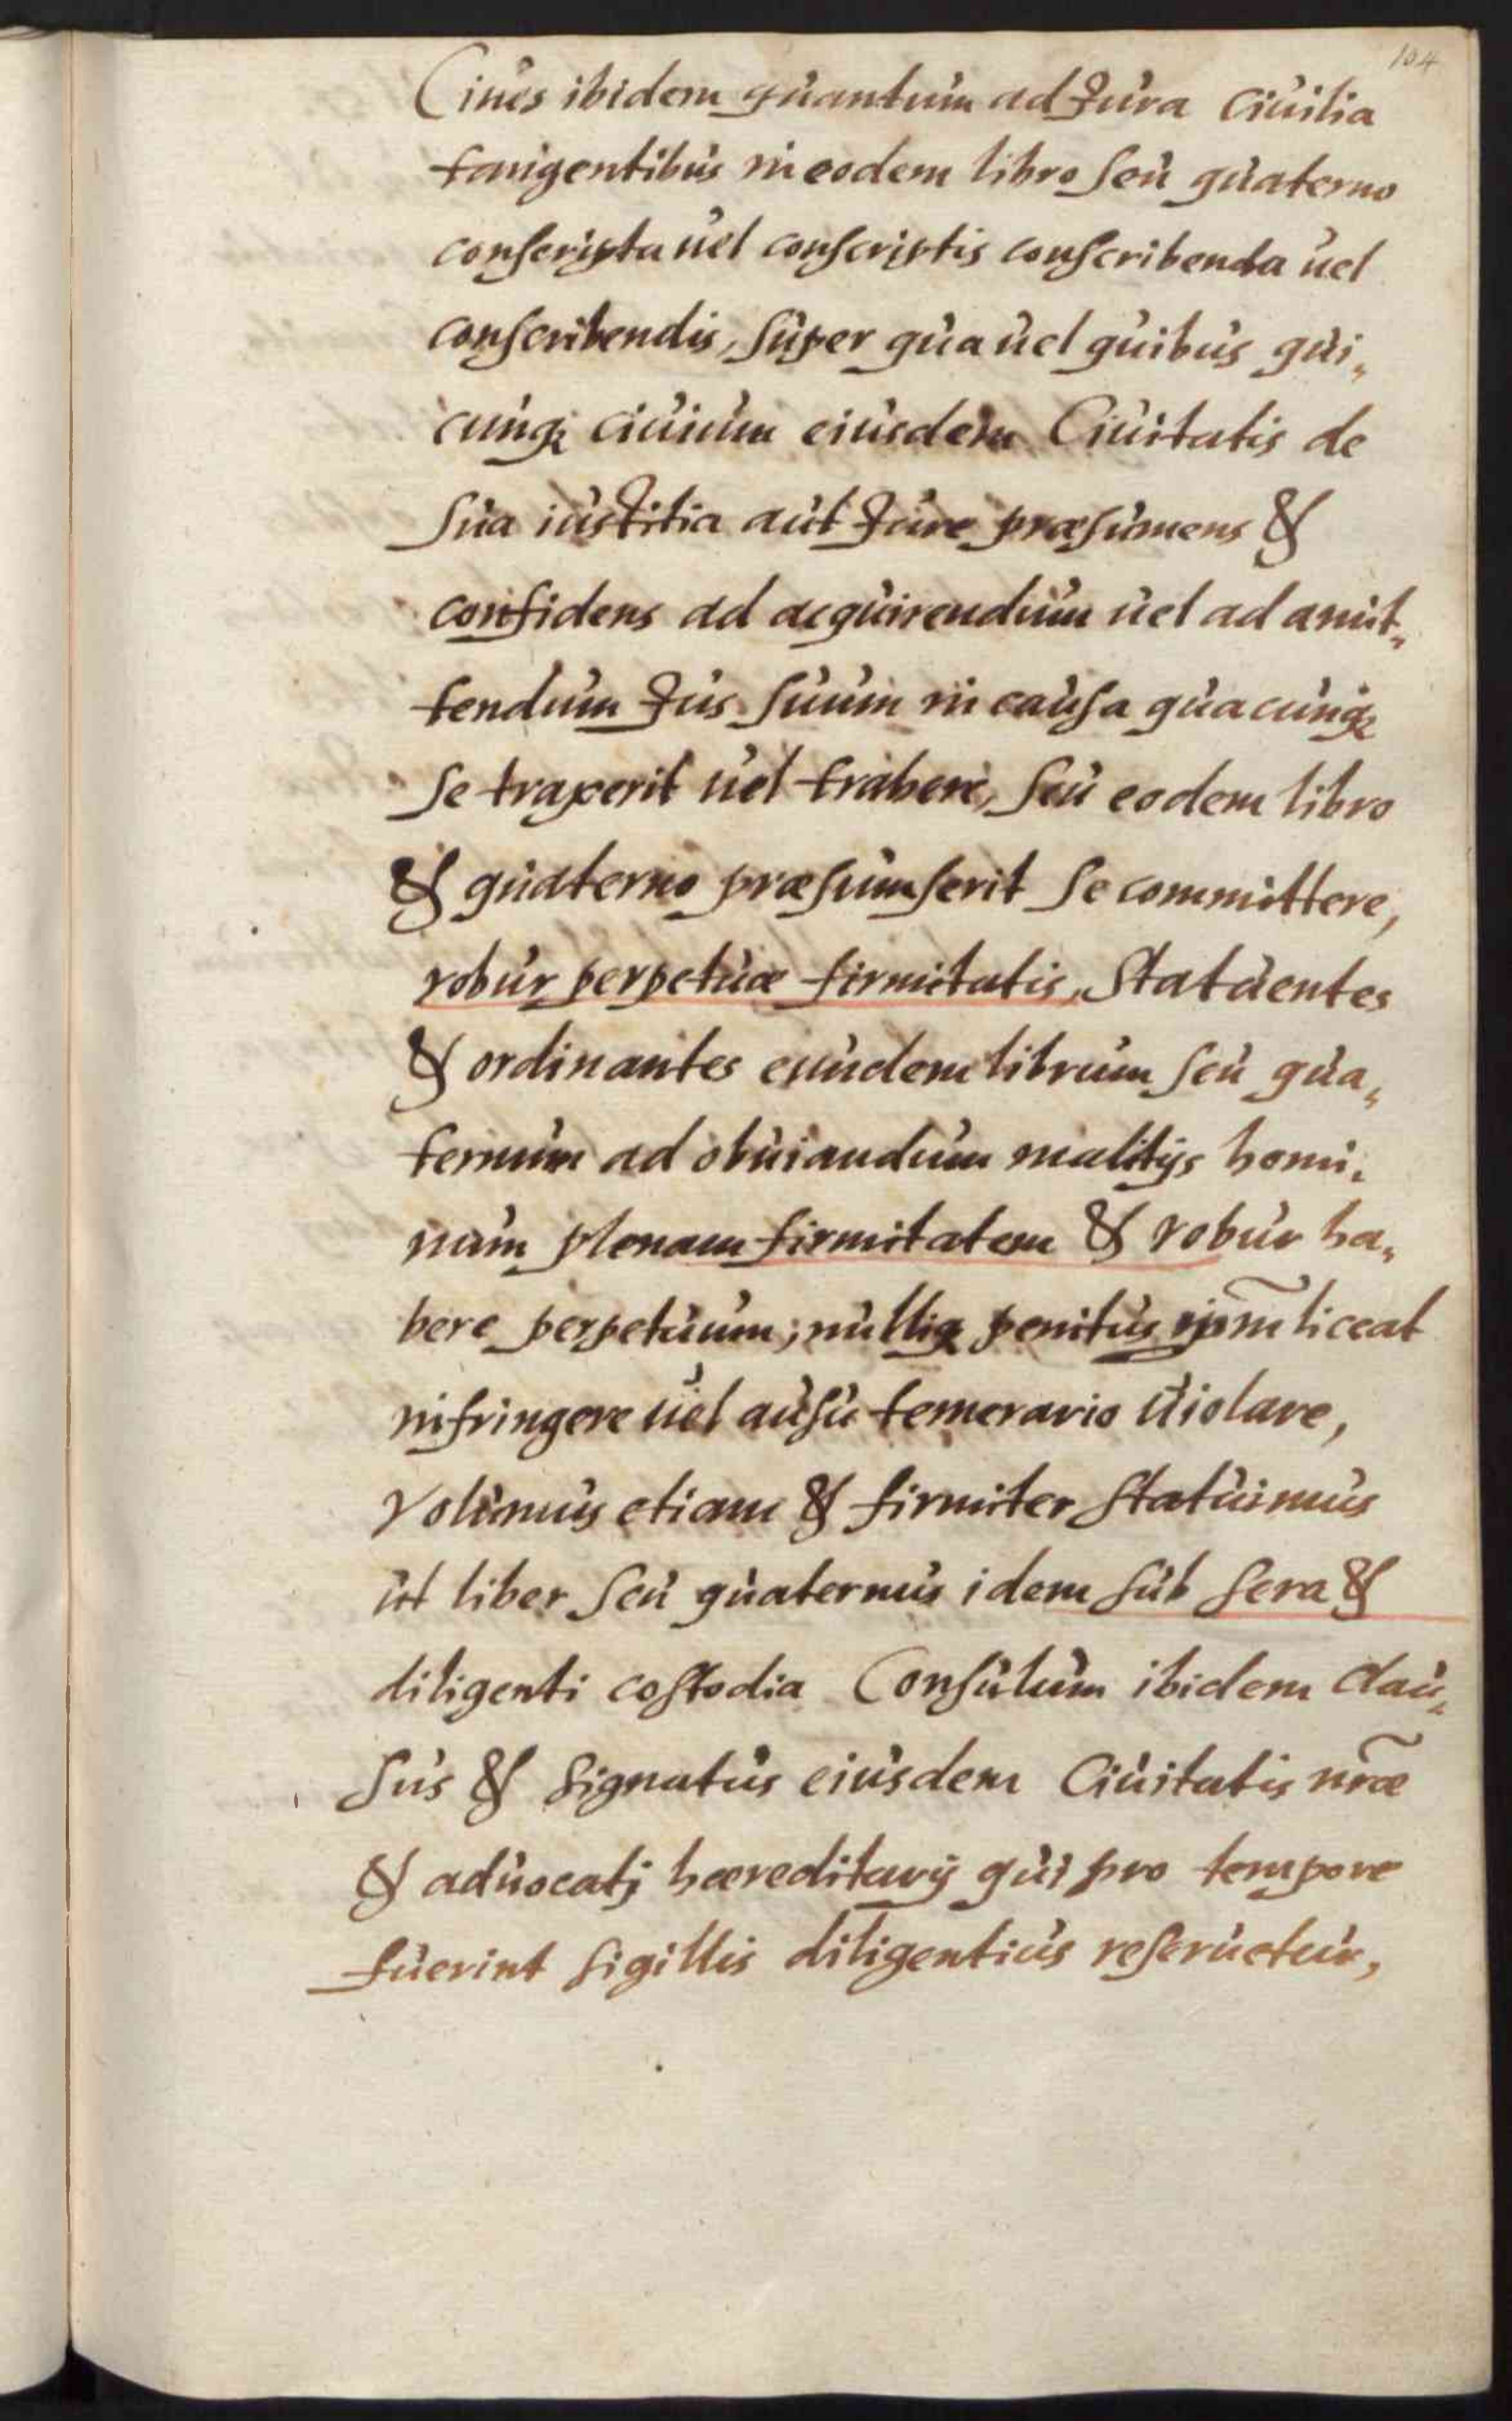 104
Ciues ibidem quantum ad Jura Ciuilia
tangentibus in eodem libro seu quaterno
conscripta uel conscriptis conscribenda uel
conscribendis, super qua uel quibus qui„
cunq; ciuium eiusdem Ciuitatis de
sua iustitia aut Jure præsumens &
confidens ad acquirendum uel ad amit„
tendum Jus suum in causa quacunq;
se traxerit uel trahere, seu eodem libro
& quaterno præsumserit se committere,
robur perpetuæ firmitatis, Statuentes
& ordinantes eundem librum seu qua„
ternum ad obuiandum malitijs homi„
num plenam firmitatem & robur ha„
bere perpetuum; nulliq; penitus ip̃m liceat
infringere uel ausu temerario uiolare,
Volumus etiam & firmiter statuimus
ut liber seu quaternus idem sub sera &
diligenti costodia Consulum ibidem clau„
sus & signatus eiusdem Ciuitatis nr̃æ
& aduocatj hæreditarij qui pro tempore
fuerint sigillis diligentius reseruetur,